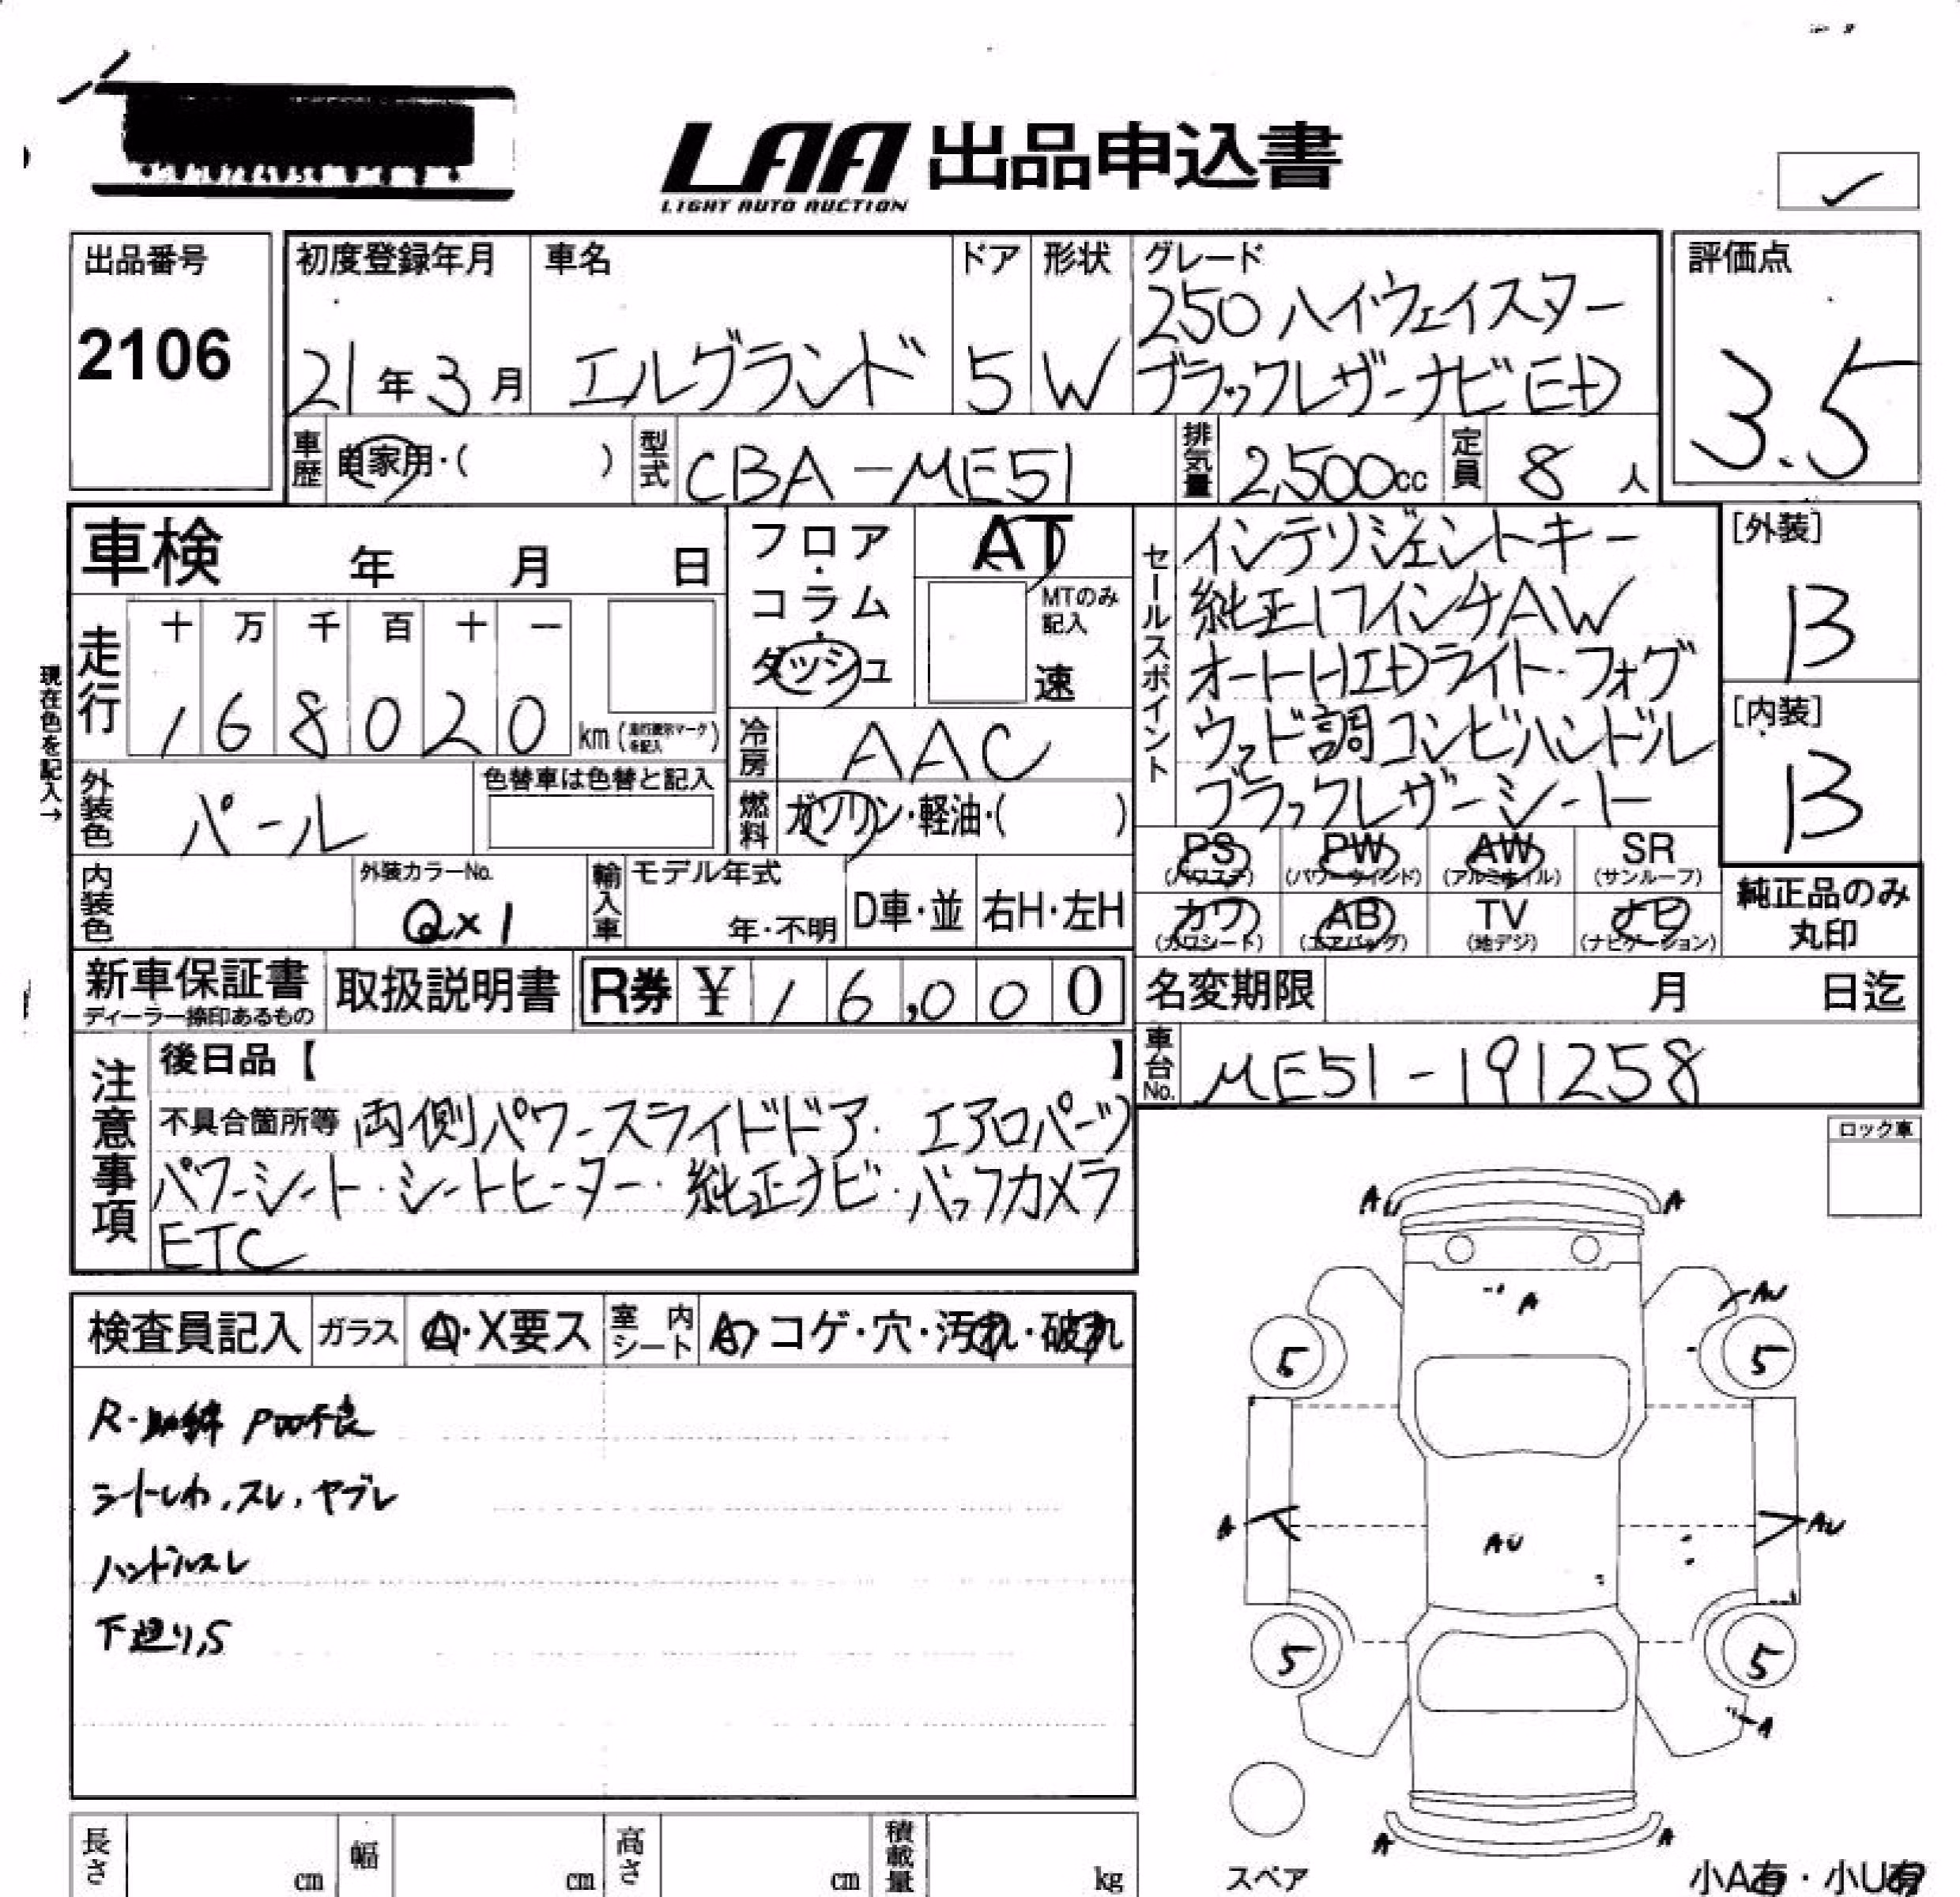 LAA 出品申込書
LIGHT AUTO AUCTION
出品番号
2106
初度登録年月
21年3月
車名
エルグランド
ドア
5
形状
W
グレード
250 ハイウェイスター
ブラックレザーナビED
評価点
3.5
車歴
自家用・( )
型式
CBA-ME51
排気量
2,500cc
定員
8人
車検 年 月 日
現在色を記入→
走行
十 万 千 百 十 一
1 6 8 0 2 0 km
フロア・コラム・ダッシュ
AT
MTのみ記入
速
冷房
AAC
燃料
ガソリン・軽油・( )
外装色
パール
色替車は色替と記入
内装色
外装カラーNo.
QX1
輸入車
モデル年式
年・不明
D車・並
右H・左H
セールスポイント
インテリジェントキー
純正17インチAW
オートHIDライト・フォグ
ウッド調コンビハンドル
ブラックレザーシート
[外装]
B
[内装]
B
PS (パワステ)
PW (パワーウィンド)
AW (アルミホイル)
SR (サンルーフ)
カワ (カワシート)
AB (エアバッグ)
TV (地デジ)
ナビ (ナビゲーション)
純正品のみ
丸印
新車保証書
ディーラー捺印あるもの
取扱説明書
R券 ¥16,000
名変期限 月 日迄
車台No.
ME51-191258
注意事項
後日品【 】
不具合箇所等 両側パワースライドドア・エアロパーツ
パワーシート・シートヒーター・純正ナビ・バックカメラ
ETC
ロック車
検査員記入
ガラス
A・X要ス
室内シート
A・コゲ・穴・汚れ・破れ
R・助錆 PW不良
シートしわ,スレ,ヤブレ
ハンドルスレ
下廻り,S
A A
A AU
5 5
A AU AU
5 5
A
A A
スペア
長さ cm
幅 cm
高さ cm
積載量 kg
小A有・小U有